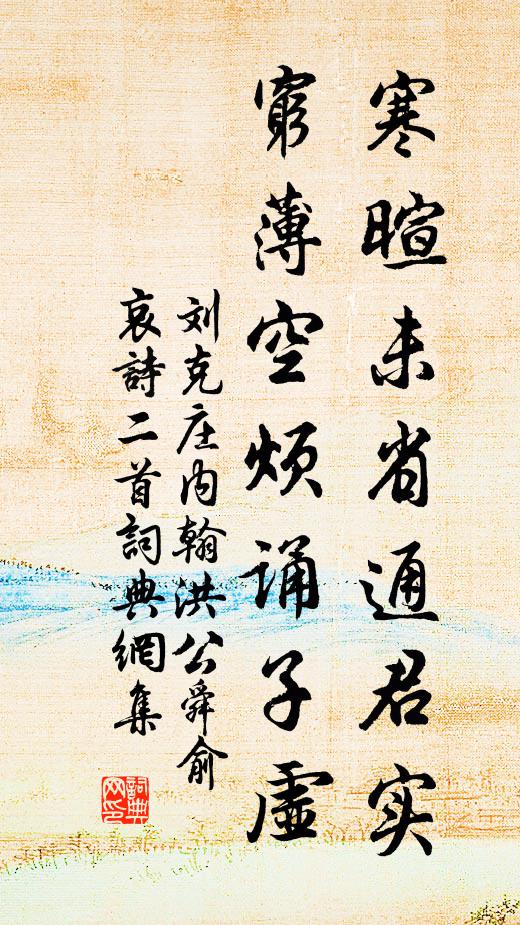 寒暄未省通君实
穷薄空烦诵子虚
刘克庄内翰洪公舜俞
哀詩二首詞典網集
詞典
网印